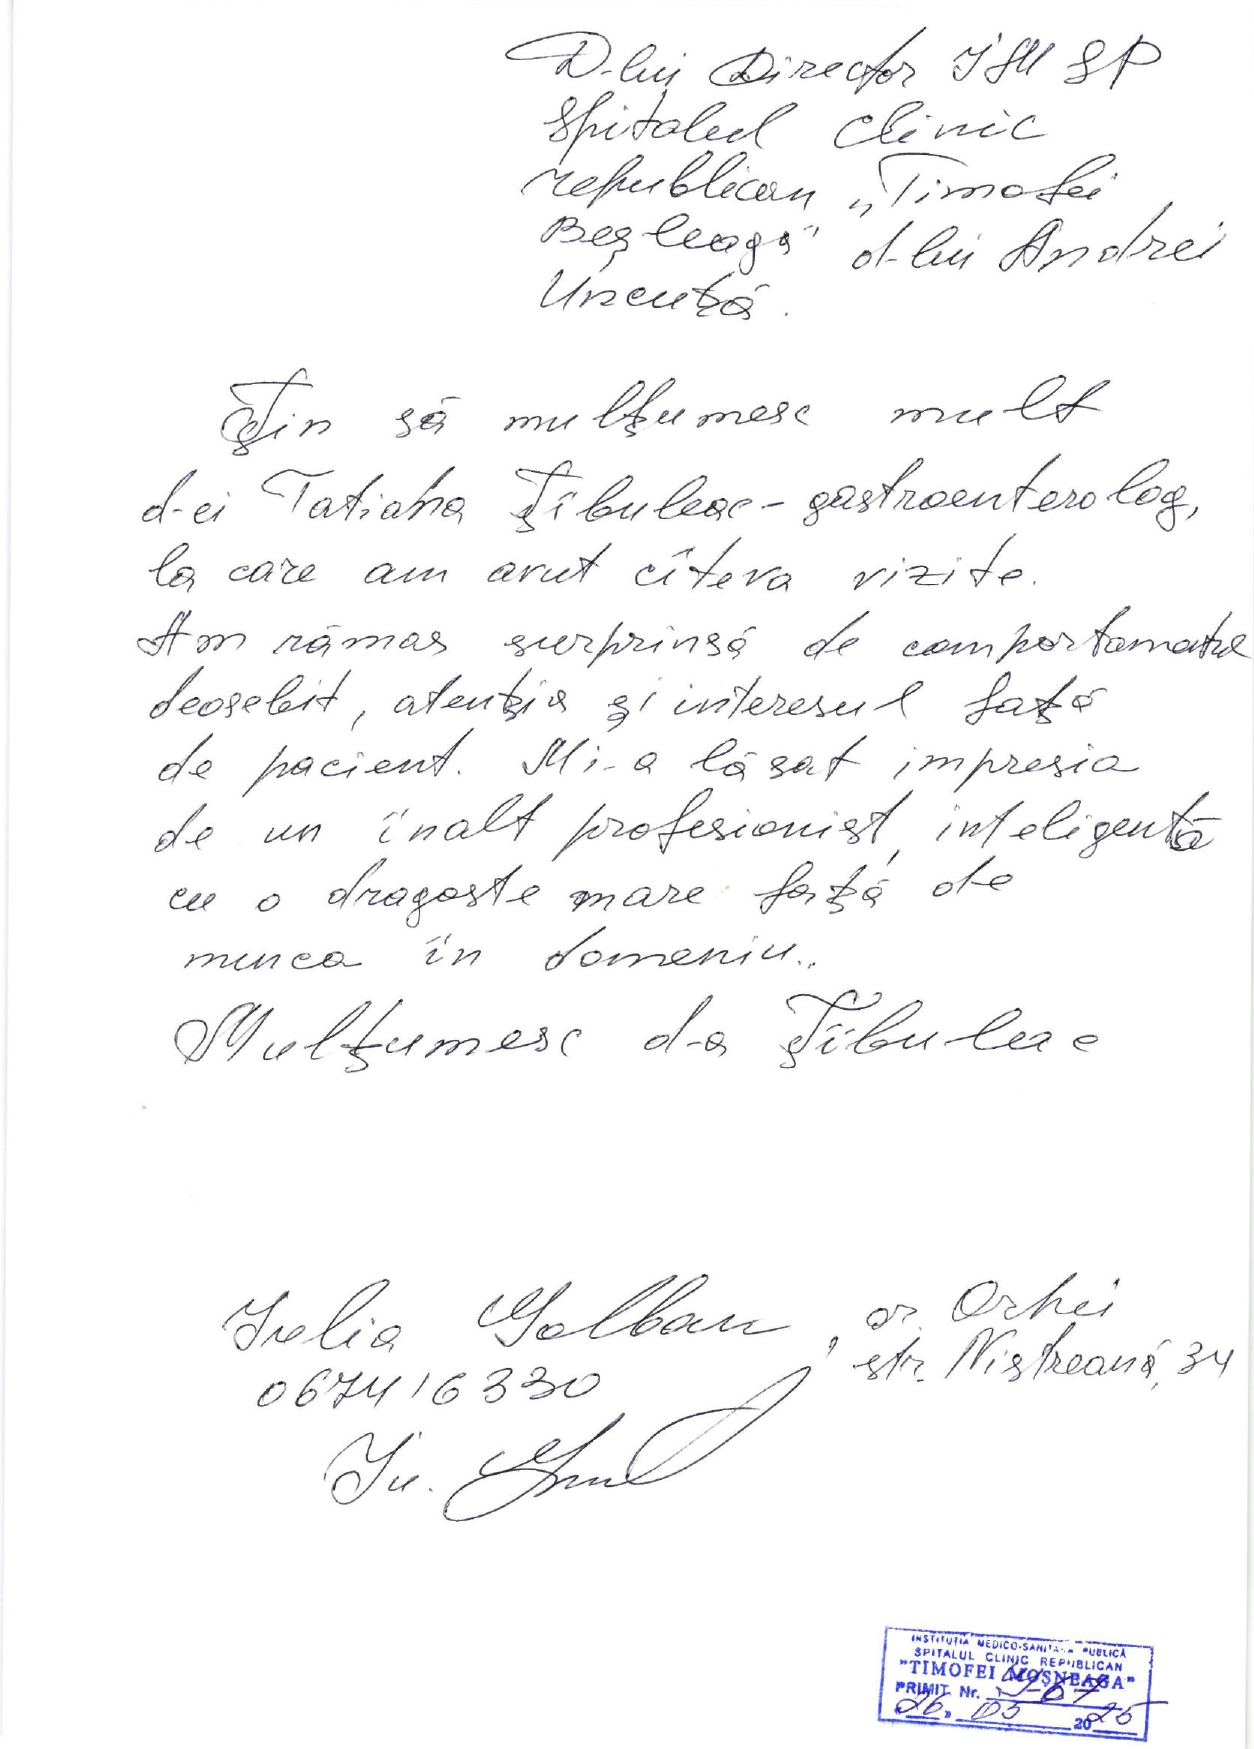 D-lui Director ISM SP
Spitalul Clinic
republican „Timofei
Beșleagă" d-lui Andrei
Uncuță.
Țin să mulțumesc mult
d-ei Tatiana Țîbuleac - gastroenterolog,
la care am avut cîteva vizite.
Am rămas surprinsă de comportamatul
deosebit, atenția și interesul față
de pacient. Mi-a lăsat impresia
de un înalt profesionist, inteligentă
cu o dragoste mare față de
munca în domeniu..
Mulțumesc d-a Țîbuleac
Iulia Golban, or. Orhei
str. Nistreană, 34
067416330
Iu.
INSTITUȚIA MEDICO-SANITARĂ PUBLICĂ
SPITALUL CLINIC REPUBLICAN
"TIMOFEI MOȘNEAGA"
PRIMIT Nr.
"26" 05 2025